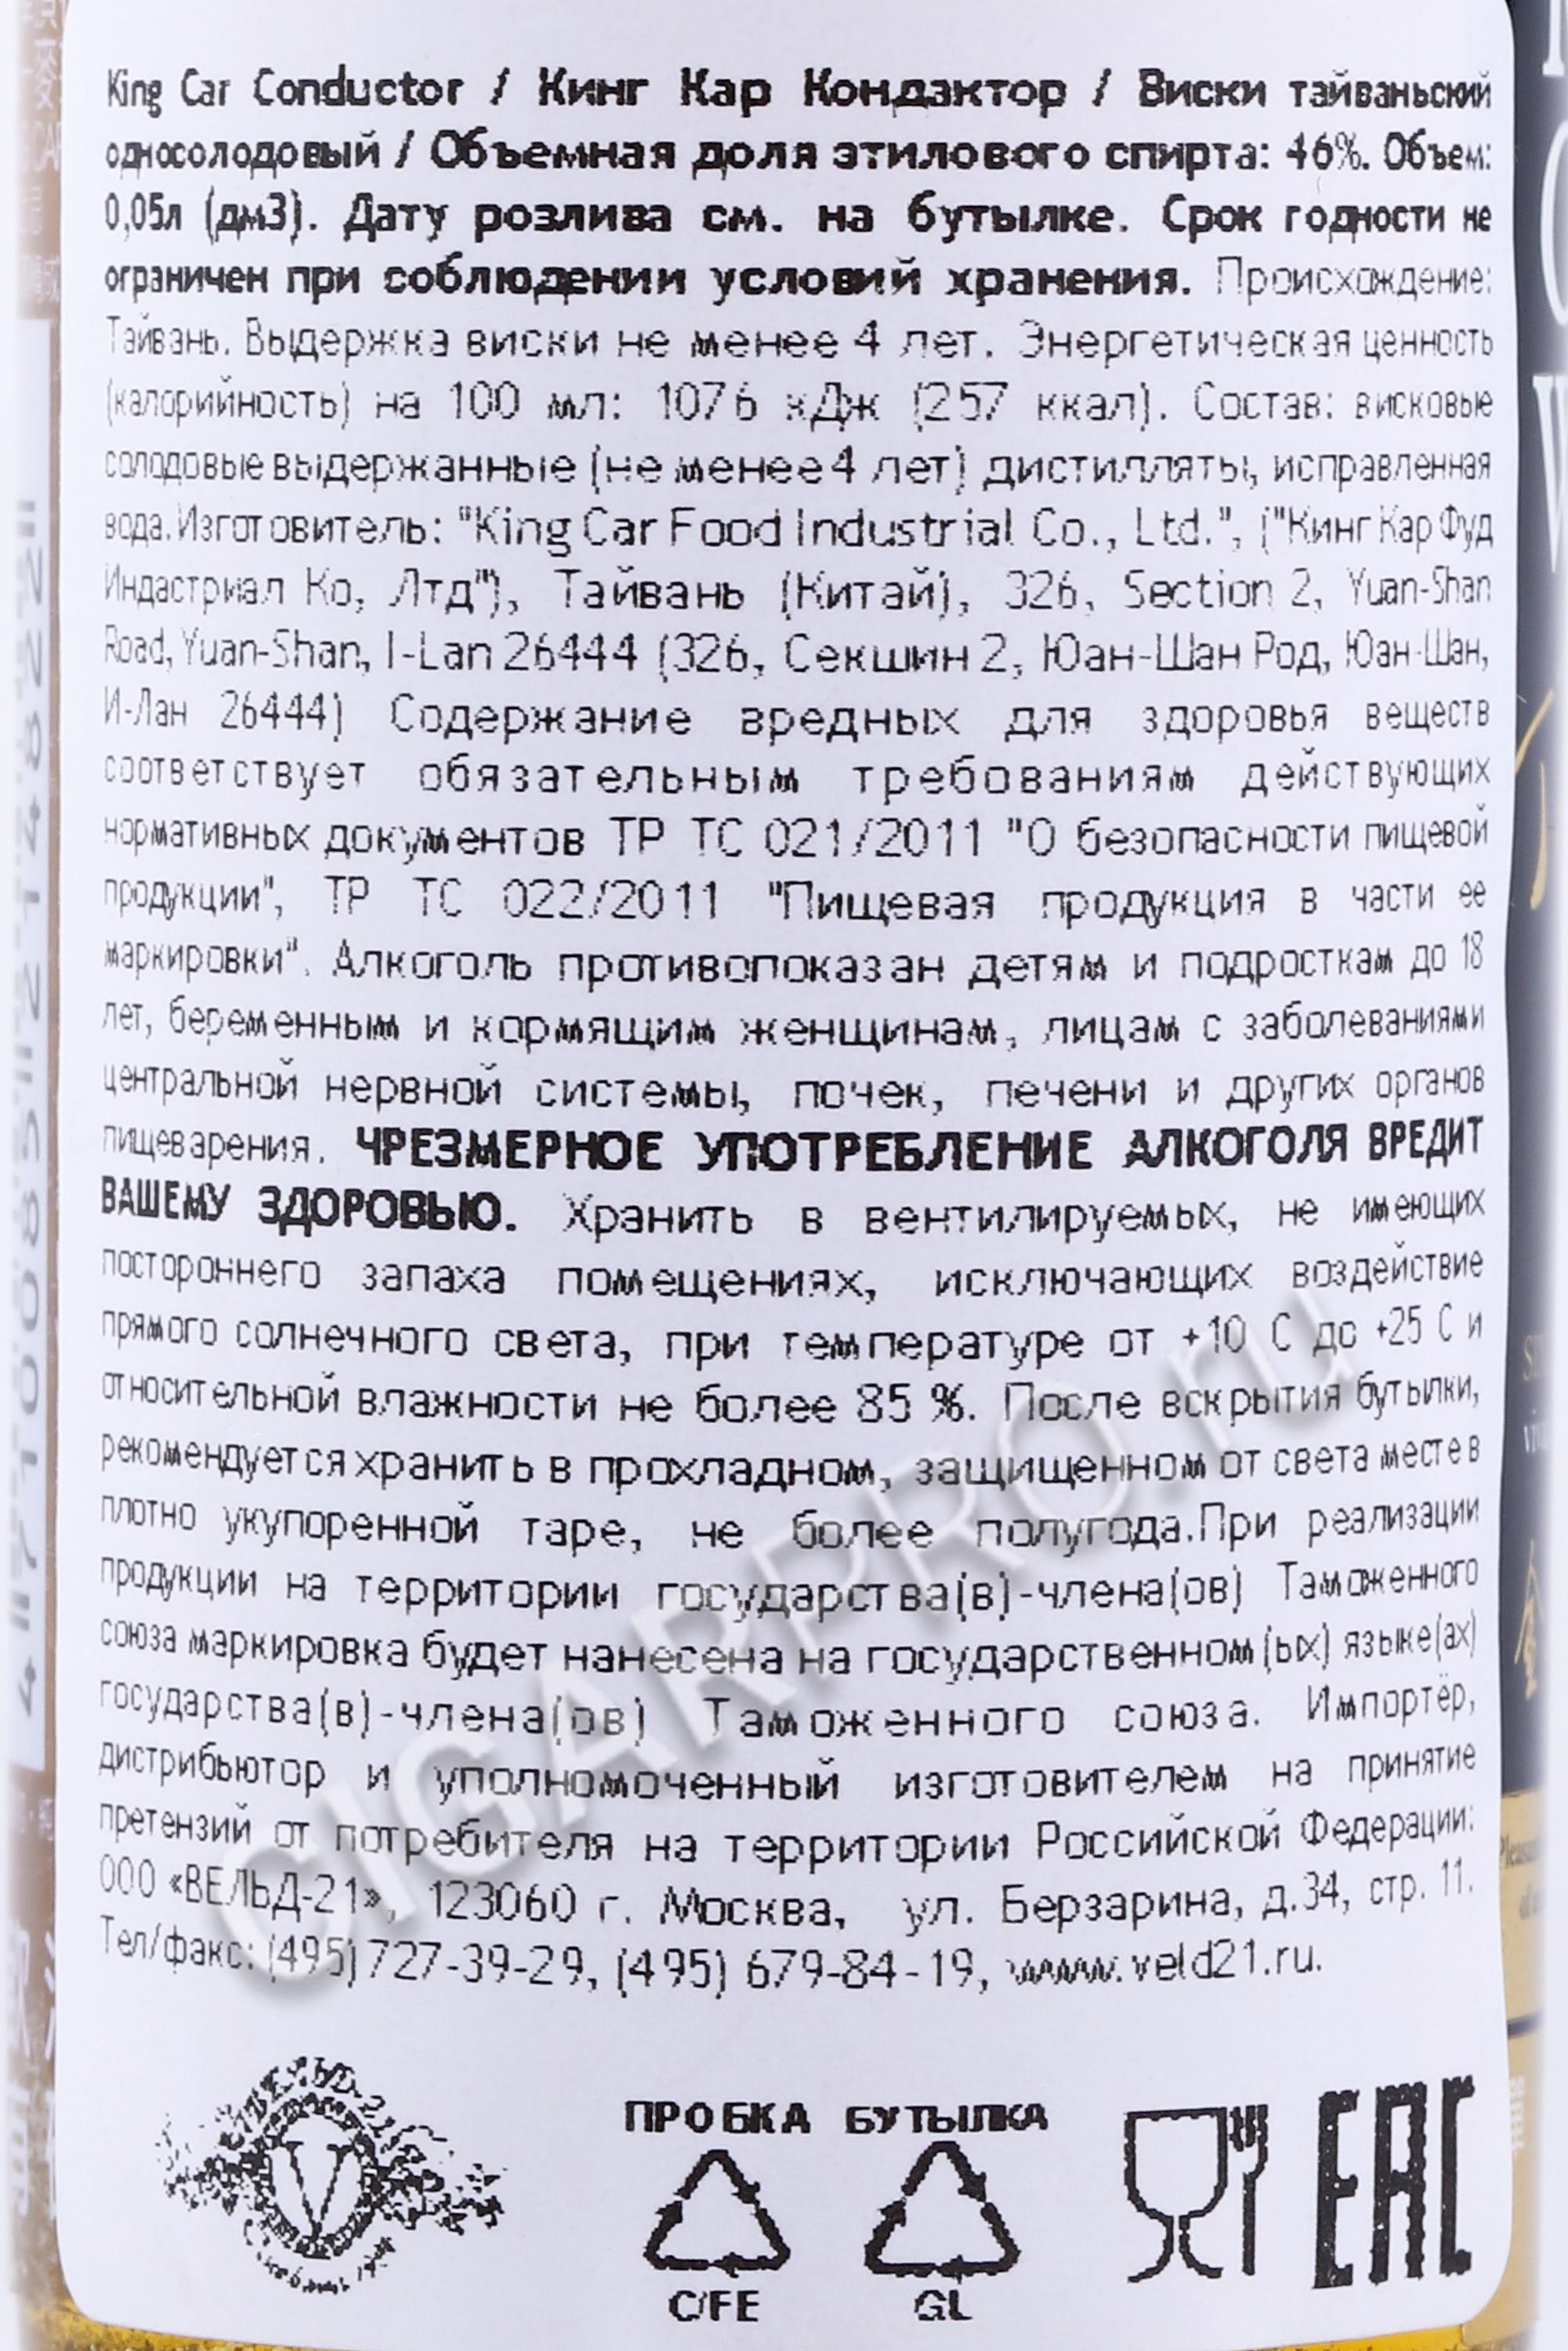 King Car Conductor / Кинг Кар Кондактор / Виски тайваньский
односолодовый / Объемная доля этилового спирта: 46%. Объем:
0,05л (дм3). Дату розлива см. на бутылке. Срок годности не
ограничен при соблюдении условий хранения. Происхождение:
Тайвань. Выдержка виски не менее 4 лет. Энергетическая ценность
(калорийность) на 100 мл: 1076 кДж (257 ккал). Состав: висковые
солодовые выдержанные (не менее 4 лет) дистилляты, исправленная
вода. Изготовитель: "King Car Food Industrial Co., Ltd.", ("Кинг Кар Фуд
Индастриал Ко, Лтд"), Тайвань (Китай), 326, Section 2, Yuan-Shan
Road, Yuan-Shan, I-Lan 26444 (326, Секшин 2, Юан-Шан Род, Юан-Шан,
И-Лан 26444) Содержание вредных для здоровья веществ
соответствует обязательным требованиям действующих
нормативных документов ТР ТС 021/2011 "О безопасности пищевой
продукции", ТР ТС 022/2011 "Пищевая продукция в части ее
маркировки". Алкоголь противопоказан детям и подросткам до 18
лет, беременным и кормящим женщинам, лицам с заболеваниями
центральной нервной системы, почек, печени и других органов
пищеварения. ЧРЕЗМЕРНОЕ УПОТРЕБЛЕНИЕ АЛКОГОЛЯ ВРЕДИТ
ВАШЕМУ ЗДОРОВЬЮ. Хранить в вентилируемых, не имеющих
постороннего запаха помещениях, исключающих воздействие
прямого солнечного света, при температуре от +10 С до +25 С и
относительной влажности не более 85 %. После вскрытия бутылки,
рекомендуется хранить в прохладном, защищенном от света месте в
плотно укупоренной таре, не более полугода.При реализации
продукции на территории государства(в)-члена(ов) Таможенного
союза маркировка будет нанесена на государственном(ых) языке(ах)
государства(в)-члена(ов) Таможенного союза. Импортёр,
дистрибьютор и уполномоченный изготовителем на принятие
претензий от потребителя на территории Российской Федерации:
ООО «ВЕЛЬД-21», 123060 г. Москва, ул. Берзарина, д.34, стр. 11.
Тел/факс: (495) 727-39-29, (495) 679-84-19, www.veld21.ru.
CIGARPRO.ru
ПРОБКА БУТЫЛКА
V
C/FE GL
EAC